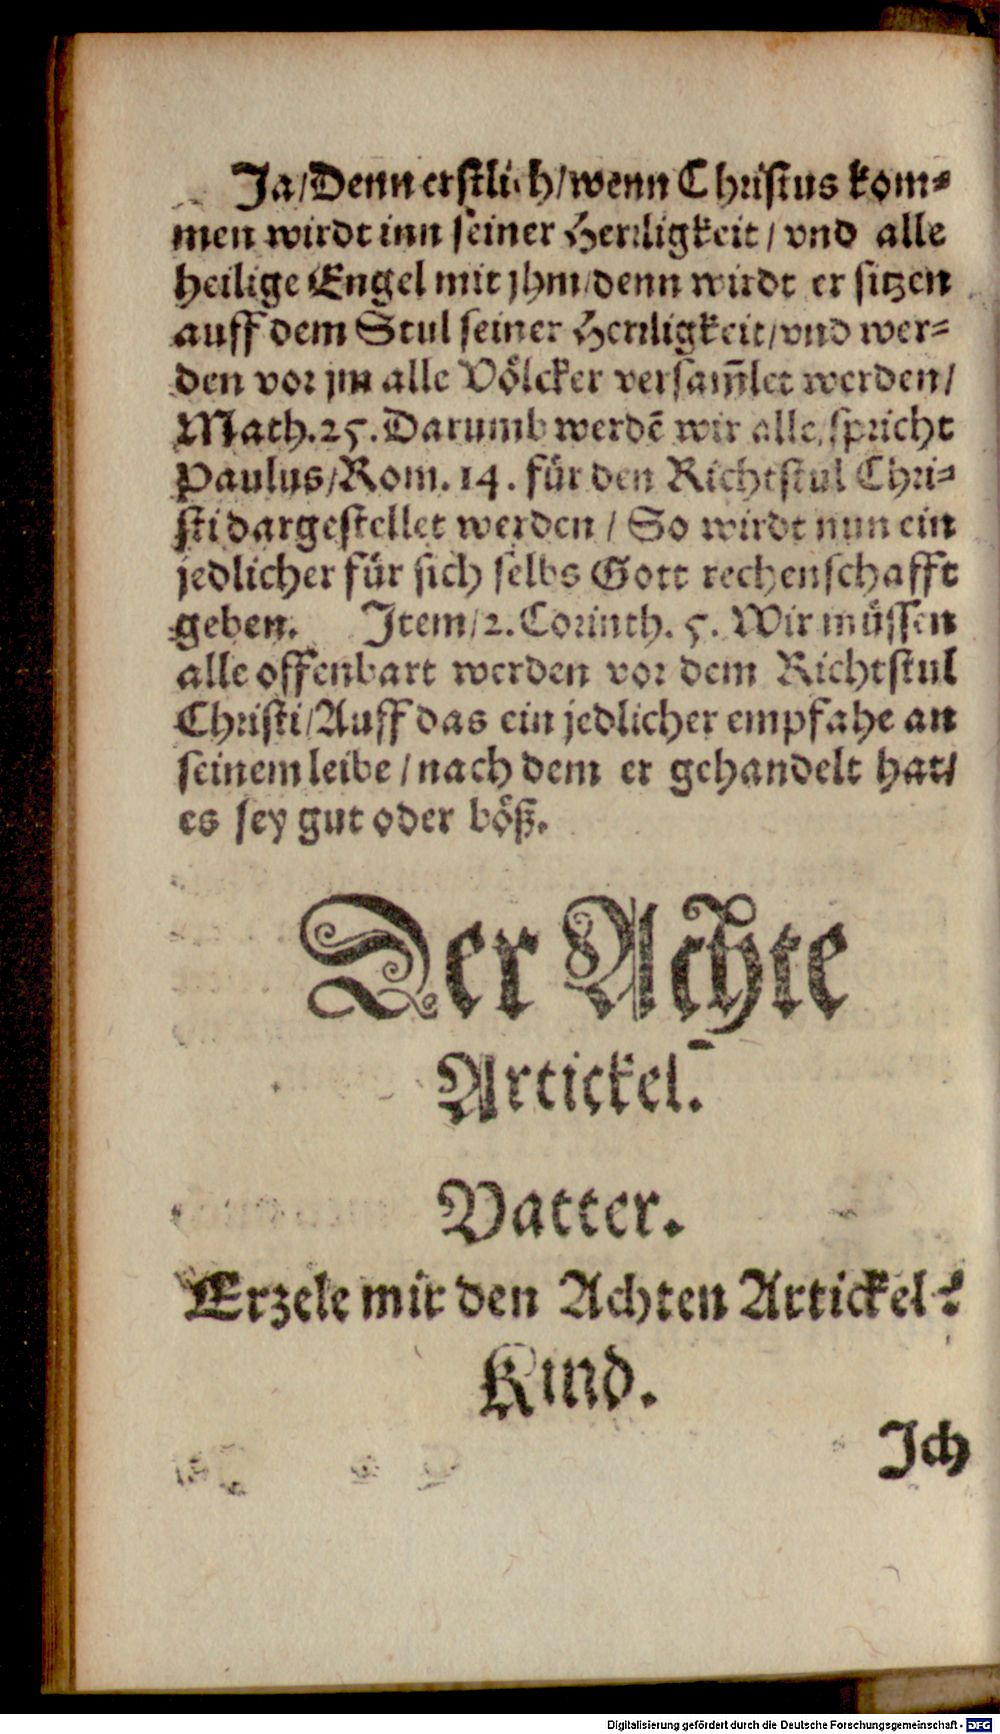 Ja/Denn erstlich/wenn Christus kom⸗
men wirdt inn seiner Herrligkeit/ vnd alle
heilige Engel mit jhm/denn wirdt er sitzen
auff dem Stul seiner Herrligkeit/vnd wer⸗
den vor jm alle Völcker versam̄let werden/
Math.25. Darumb werdē wir alle, spricht
Paulus/Rom. 14. für den Richtstul Chri⸗
sti dargestellet werden / So wirdt nun ein
jedlicher für sich selbs Gott rechenschafft
geben. Item/2. Corinth. 5. Wir müssen
alle offenbart werden vor dem Richtstul
Christi/Auff das ein jedlicher empfahe an
seinem leibe / nach dem er gehandelt hat/
es sey gut oder böß.
Der Achte
Artickel.
Vatter.
Erzele mir den Achten Artickel?
Kind.
Ich
Digitalisierung gefördert durch die Deutsche Forschungsgemeinschaft - DFG